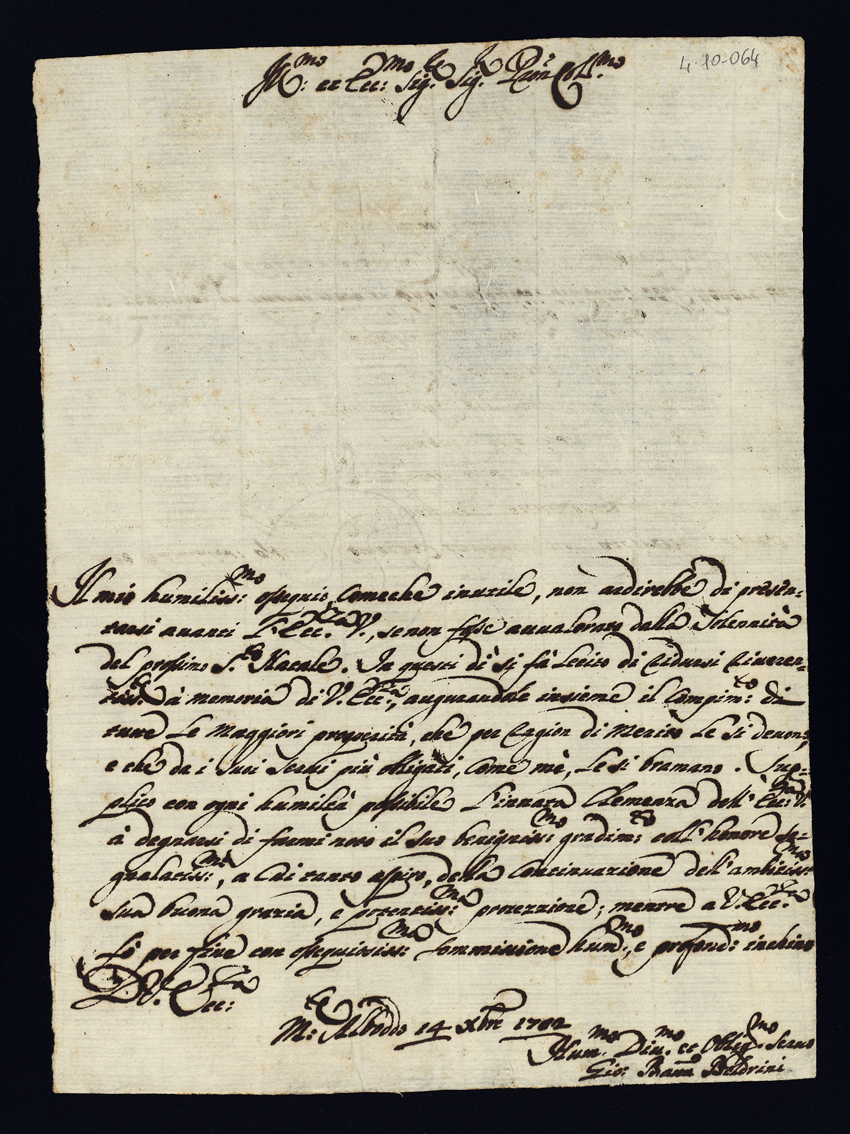 Ill.mo et Ecc.mo Sig.re Sig.r Pron Coll.mo
4-10-064
Il mio humiliss:mo ossequio, comeche inutile, non ardirebbe di presen-
tarsi avanti l'Ecc.za V., se non fosse avvalorato dalla solennità
del prossimo S.to Natale. In questi dì si fà lecito di
à memoria di V. Ecc.za, augurandole insieme il compim:to di
tutte le maggiori prosperità, che per cagion di merito le si devono,
e che da i suoi servi più obligati, come mè, le si bramano. Sup-
plico con ogni humiltà possibile l'innata clemenza dell'Ecc:za V.
à degnarsi di farmi noto il suo benigniss:mo gradim:to coll'honore se-
gnalatiss:mo, a cui tanto aspiro, della continuazione dell'ambitiss:ma
sua buona grazia, e potentiss:ma protezzione; mentre a V. Ecc.za
fò per fine con ossequiosiss:ma sommissione hum:mo, e profond:mo inchino
D. V. Ecc:za
M:te Alboddo 14 Xbre 1702
Hum.mo Div.mo et Oblig.mo Serv.
Gio: Batta Beldrini